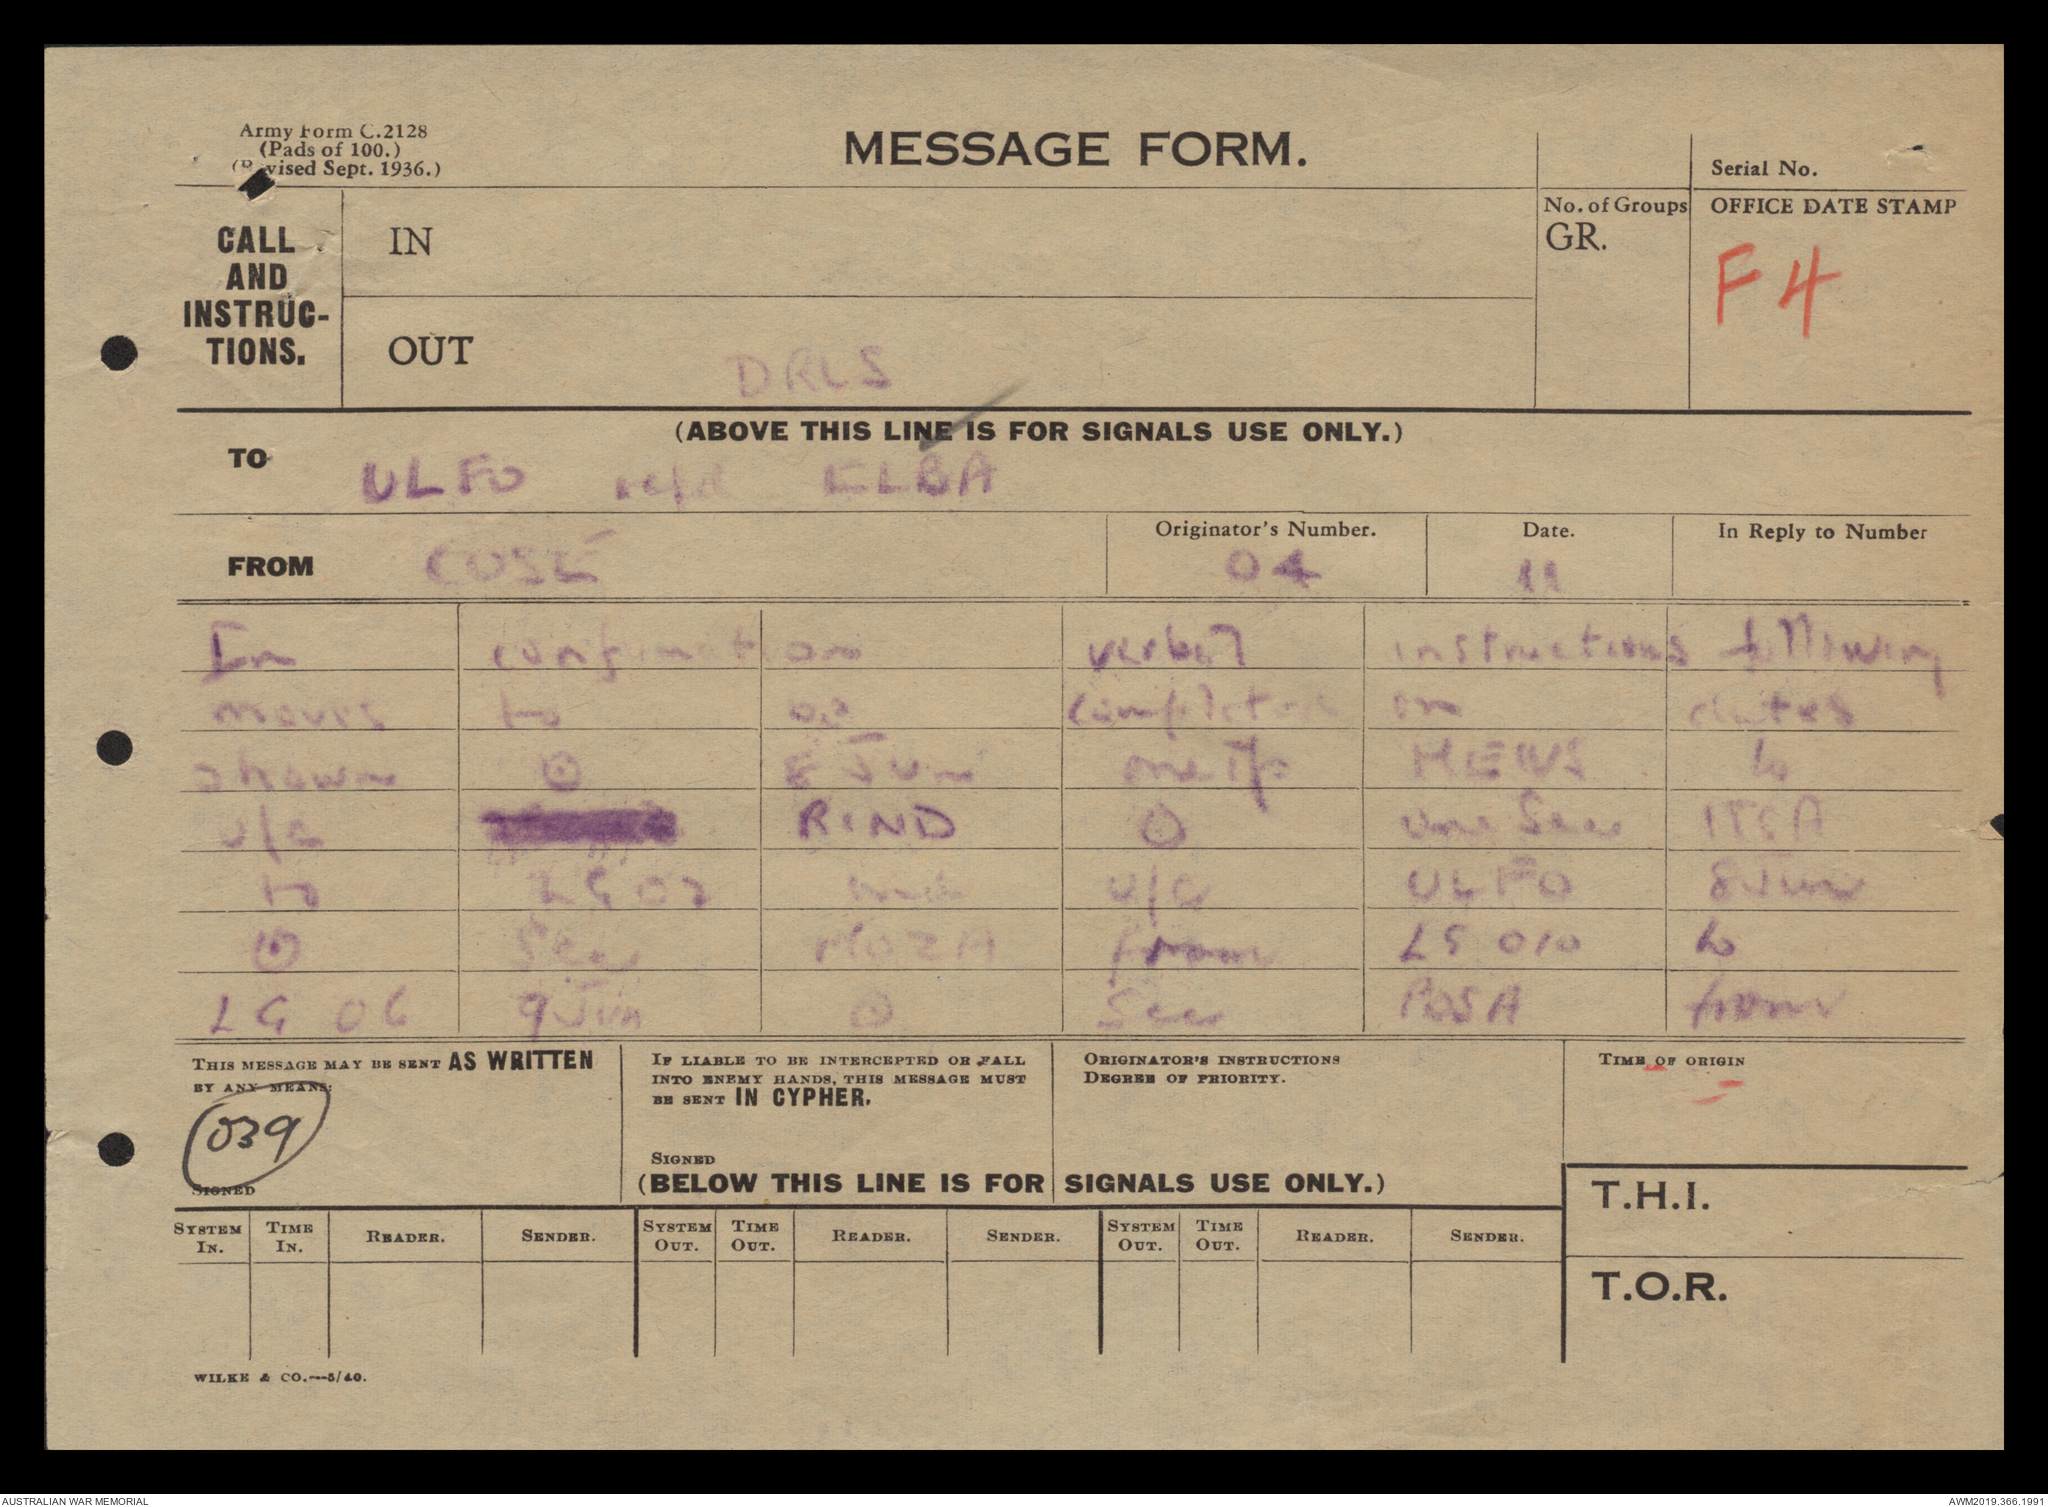 Army Form C.2128
(Pads of 100.)
(Revised Sept. 1936.)
MESSAGE FORM.
Serial No.
CALL AND INSTRUC-TIONS.
IN
No. of Groups GR.
OFFICE DATE STAMP
F 4
OUT
DRLS
(ABOVE THIS LINE IS FOR SIGNALS USE ONLY.)
TO
ULFO ELBA
FROM
COSE
Originator's Number.
04
Date.
11
In Reply to Number
In confirmation verbal instructions following
moves to completed on dates
shown ⊙ 8 Jun one Tp HEWS to
u/c RIND O one Sec
to LG 02 u/c ULFO 8 Jun
⊙ Sec MOZA from LG 010 to
LG 06 9 Jun ⊙ Sec POSA from
THIS MESSAGE MAY BE SENT AS WRITTEN
BY ANY MEANS:
039
SIGNED
IF LIABLE TO BE INTERCEPTED OR FALL
INTO ENEMY HANDS, THIS MESSAGE MUST
BE SENT IN CYPHER.
SIGNED
ORIGINATOR'S INSTRUCTIONS
DEGREE OF PRIORITY.
TIME OF ORIGIN
(BELOW THIS LINE IS FOR SIGNALS USE ONLY.)
T.H.I.
SYSTEM IN. TIME IN. READER. SENDER. SYSTEM OUT. TIME OUT. READER. SENDER. SYSTEM OUT. TIME OUT. READER. SENDER.
T.O.R.
WILKE & CO.—5/40.
AUSTRALIAN WAR MEMORIAL
AWM2019.366.1991